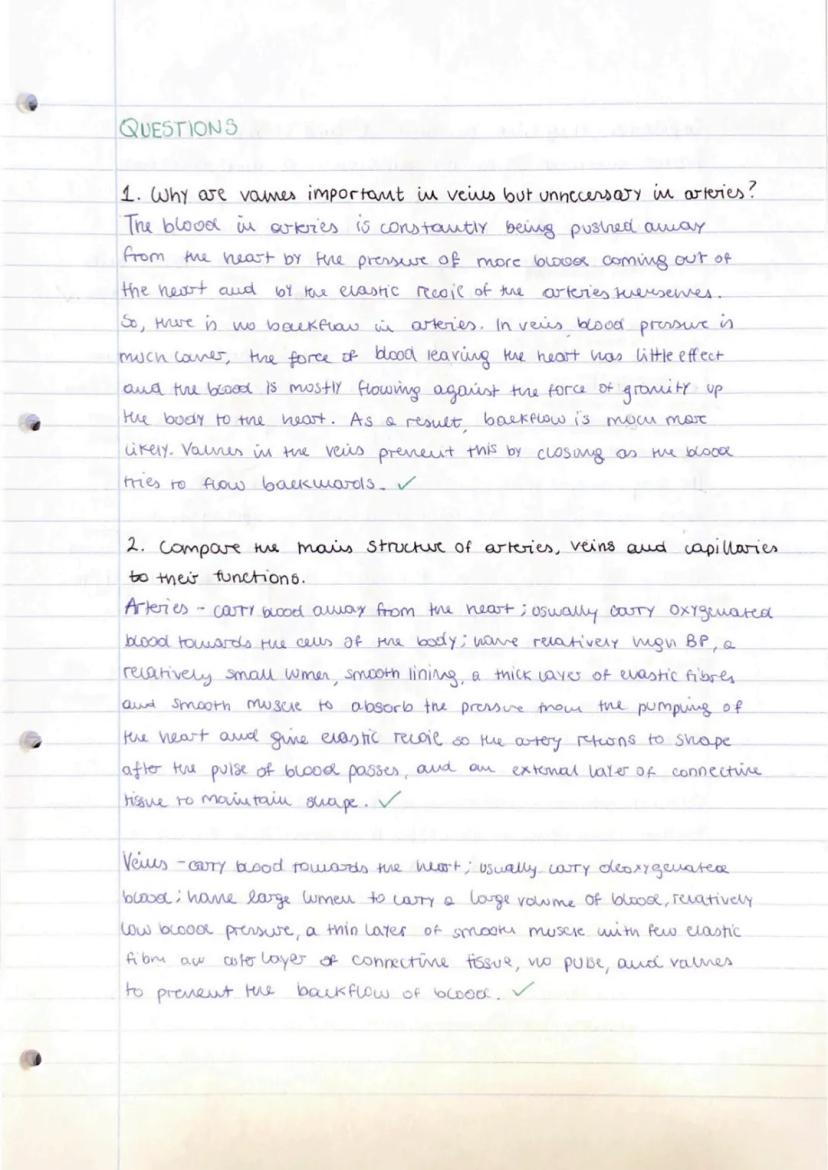 QUESTIONS
1. Why are valves important in veins but unneccersary in arteries?
The blood in arteries is constantly being pushed away
from the heart by the pressure of more blood coming out of
the heart and by the elastic recoil of the arteries themselves.
So, there is no backflow in arteries. In veins, blood pressure is
much lower, the force of blood leaving the heart has little effect
and the blood is mostly flowing against the force of gravity up
the body to the heart. As a result, backflow is much more
likely. Valves in the veins prevent this by closing as the blood
tries to flow backwards. ✓
2. Compare the main structure of arteries, veins and capillaries
to their functions.
Arteries - carry blood away from the heart; usually carry oxygenated
blood towards the cells of the body; have relatively high BP, a
relatively small lumen, smooth lining, a thick layer of elastic fibres
and smooth muscle to absorb the pressure from the pumping of
the heart and give elastic recoil so the artery returns to shape
after the pulse of blood passes, and an external layer of connective
tissue to maintain shape. ✓
Veins - carry blood towards the heart; usually carry deoxygenated
blood; have large lumen to carry a large volume of blood, relatively
low blood pressure, a thin layer of smooth muscle with few elastic
fibre layer of connective tissue, no pulse, and valves
to prevent the backflow of blood. ✓